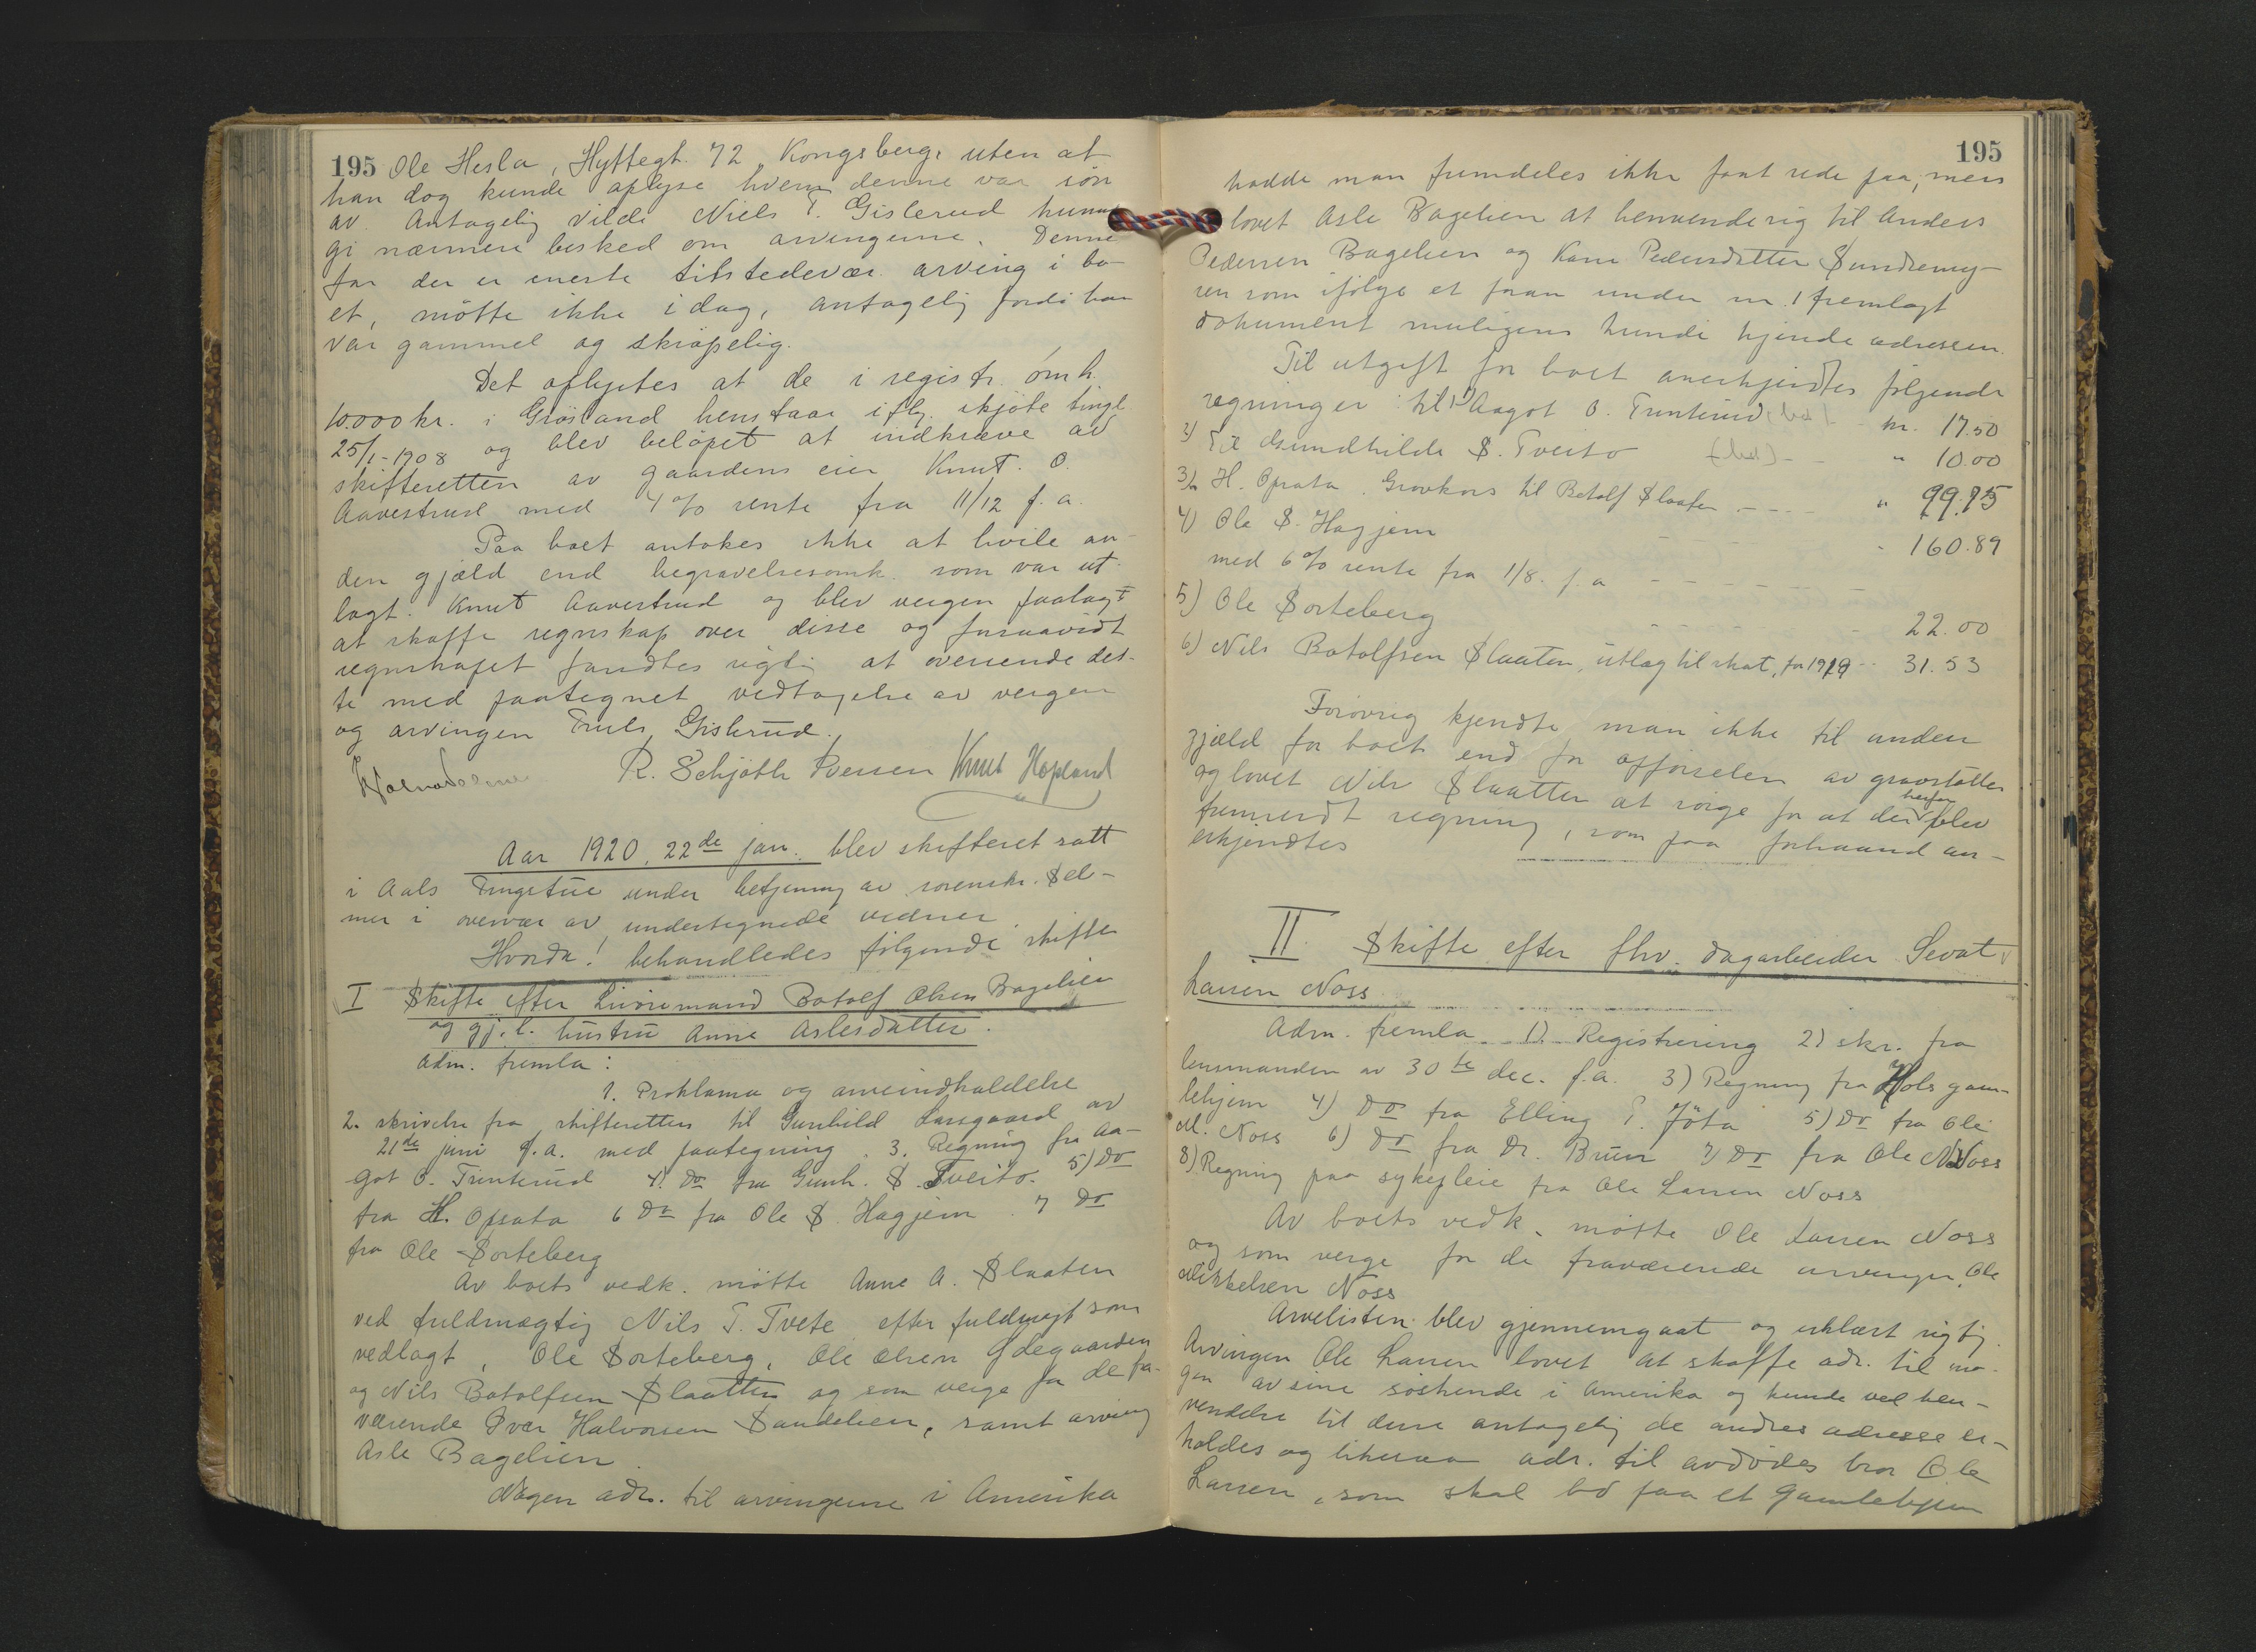 195 Ole Hesla, Hyttegt. 72, Kongsberg, uten at
han dog kunde oplyse hvem denne var søn
av. Antagelig vilde Niels T. Gislerud kunne
gi nærmere besked om arvingerne. Denne
før der er eneste tilstedevær. arving i bo-
et, møtte ikke idag, antagelig fordi han
var gammel og skrøpelig.
Det oplystes at de i registr. omh.
10.000 kr. i Grøsland henstaar iflg. skjøte tingl.
25/1-1908 og blev beløpet at indkræve av
skifteretten av gaardens eier Knut O.
Aavestrud med 4% rente fra 11/12 f.a.
Paa boet antokes ikke at hvile an-
den gjæld end begravelsesomk. som var ut-
lagt. Knut Aavestrud og blev vergen paalagt
at skaffe regnskap over disse og forsaavidt
regnskapet fandtes rigtig at oversende det-
te med paategnet vedtagelse av vergen
og arvingen Truls Gislerud.
R. Schjøth Iversen Knut Hopland
Aar 1920, 22de jan. blev skifteret satt
i Aals Tingstue under betjening av sorenskr. Sel-
mer i overvær av undertegnede vidner
Hvorda! behandledes følgende skifter
I Skifte efter Livøremand Botolf Olsen Bagelien
og gj.l. hustru Anne Aslesdatter.
Adm. fremla:
1. Proklama og arveindkaldelse
2. skrivelse fra skifteretten til Gunhild Larsgaard av
21de juni f.a. med paategning. 3. Regning fra Aa-
got O. Trinterud 4). Do fra Gunh. S. Tveito. 5) Do
fra H. Opsata 6 Do fra Ole S. Hagjem. 7 Do
fra Ole Sorteberg
Av boets vedk. møtte Anne A. Slaaten
ved fuldmægtig Nils T. Tvete efter fuldmagt som
vedlagt, Ole Sorteberg, Ole Olsen Ødegaarden
og Nils Botolfsen Slaatten og som verge for de fra-
værende Iver Halvorsen Sandelien, samt arving
Asle Bagelien.
Nogen adr. til arvingerne i Amerika
195
hadde man fremdeles ikke faat rede paa, men
lovet Asle Bagelien at henvende sig til Anders
Pedersen Bagelien og Kari Pedersdatter Sundremy-
ren som ifølge et foran under nr. 1 fremlagt
dokument muligens kunde kjende adressen.
Til utgift for boet anerkjendtes følgende
regninger: til 1) Aagot O. Trinterud (bet.) - kr. 17.50
2) Til Gundhilde S. Tveito (bet.) - - " 10.00
3) H. Opsata. Gravkors til Botolf Slaaten - - - - " 99.75
4) Ole S. Hagjem - - - - 160.89
med 6% rente fra 1/8. f.a - - - - - -
5) Ole Sorteberg - - - - 22.00
6) Nils Botolfsen Slaaten, utlæg til skat, for 1919 - - 31.53
Forøvrig kjendte man ikke til anden
gjæld for boet end for opførselen av gravstøtter
og lovet Nils Slaatten at sørge for at der herfor blev
fremsendt regning, som paa forhaand an-
erkjendtes
II. Skifte efter fhv. dagarbeider Sevat
Larsen Noss
Adm. fremla 1). Registrering 2) skr. fra
lensmanden av 30te dec. f.a. 3) Regning fra Hols gam-
lehjem 4) Do fra Elling T. Jøta 5) Do fra Ole
M. Noss 6) Do fra Dr. Bruun 7) Do fra Ole N. Noss
8). Regning paa sykepleie fra Ole Larsen Noss
Av boets vedk. møtte Ole Larsen Noss
og som verge for de fraværende arvinger, Ole
Mikkelsen Noss
Arvelisten blev gjennemgaat og erklært rigtig.
Arvingen Ole Larsen lovet at skaffe adr. til no-
gen av sine søskende i Amerika og kunde ved hen-
vendelse til disse antagelig de andres adresse er-
holdes og likesaa adr. til avdødes bror Ole
Larsen, som skal bo paa et gamlehjem